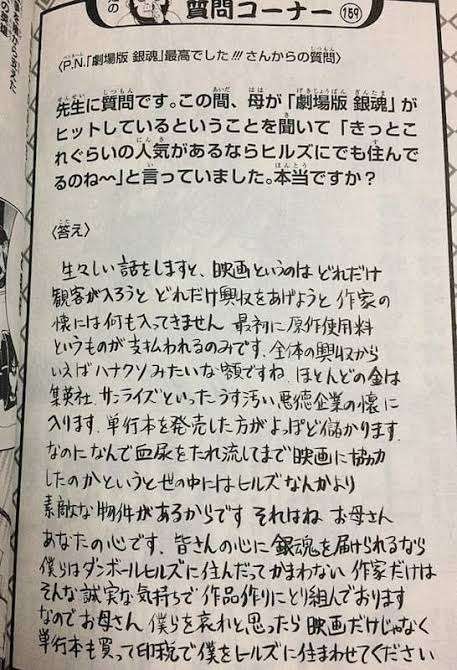 質問コーナー 159
〈P.N.「劇場版 銀魂」最高でした!!! さんからの質問〉
先生に質問です。この間、母が「劇場版 銀魂」が
ヒットしているということを聞いて「きっとこ
れぐらいの人気があるならヒルズにでも住んで
るのね〜〜」と言っていました。本当ですか？
〈答え〉
生々しい話をしますと、映画というのは どれだけ
観客が入ろうと どれだけ興収をあげようと 作家の
懐には何も入ってきません 最初に原作使用料
というものが支払われるのみです. 全体の興収から
いえばハナクソみたいな額ですね. ほとんどの金は
集英社. サンライズといったうす汚い悪徳企業の懐に
入ります. 単行本を発売した方がよっぽど儲かります.
なのになんで血尿をたれ流してまで映画に協力
したのかというと世の中にはヒルズなんかより
素敵な物件があるからです それはね お母さん
あなたの心です. 皆さんの心に 銀魂を届けられるなら
僕らはダンボールヒルズに住んだってかまわない 作家だけは
そんな誠実な気持ちで 作品作りにとり組んでおります
なのでお母さん 僕らを哀れと思ったら 映画だけじゃなく
単行本も買って印税で僕をヒルズに住まわせてください